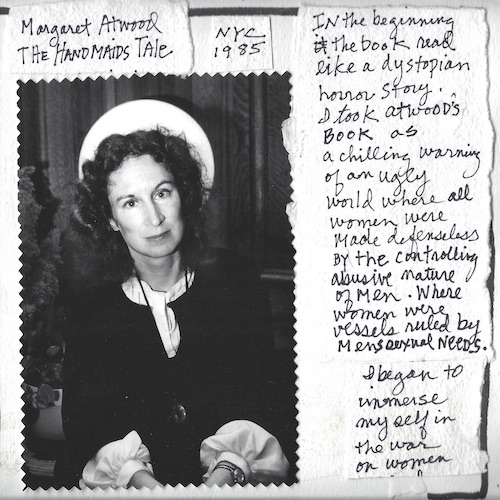 Margaret Atwood
THE HANDMAIDS TALE
NYC
1985
IN the beginning
the book read
like a dystopian
horror story.
I took atwood's
BOOK as
a chilling warning
of an ugly
world where all
women were
Made defenseless
By the controlling
abusive nature
of Men. Where
women were
vessels ruled by
Mens sexual NEEDS.
I began to
immerse
my self in
the war
on women